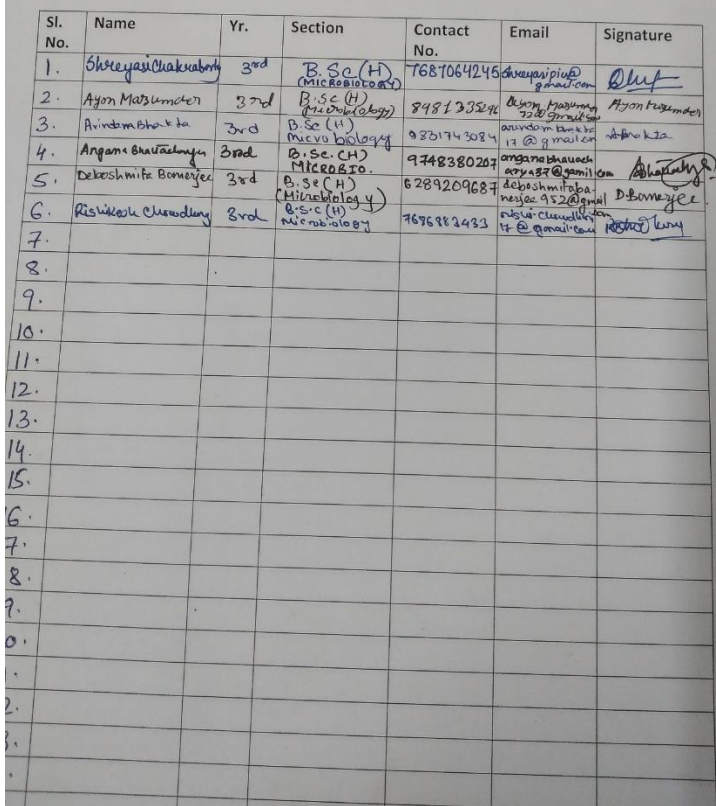 Sl. No. Name Yr. Section Contact No. Email Signature
1. Shreyasi Chakraborty 3rd B.Sc(H) (MICROBIOLOGY) 7687064245 shreyasipiu@gmail.com
2. Ayon Mazumder 3rd B.Sc(H) (Microbiology) Ayon
3. Arindam Bhakta 3rd B.Sc(H) microbiology 9831743084 17@gmail.com A Bhakta
4. Angana Bhattacharya 3rd B.Sc.(H) MICROBIO. 9748380207 anganabhattach arya37@gamil.com
5. Deboshmita Bomerjee 3rd B.Sc(H) (Microbiology) 6289209687 deboshmitaba- nerjee952@gmail D.Banerjee.
6. Rishikesh Chowdhury 3rd B.S.C(H) Microbiology 7686883433 17@gmail.com
7.
8.
9.
10.
11.
12.
13.
14.
15.
6.
7.
8.
9.
0.
1.
2.
3.